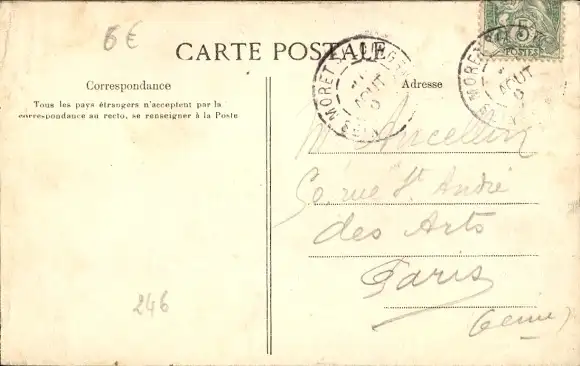 6€
CARTE POSTALE
5
POSTES
MORET
AOUT
MORET
AOUT
Correspondance
Adresse
Tous les pays étrangers n'acceptent par la
correspondance au recto, se renseigner à la Poste
Ancellin
50 rue St. André
des Arts
Paris
246
(Seine)